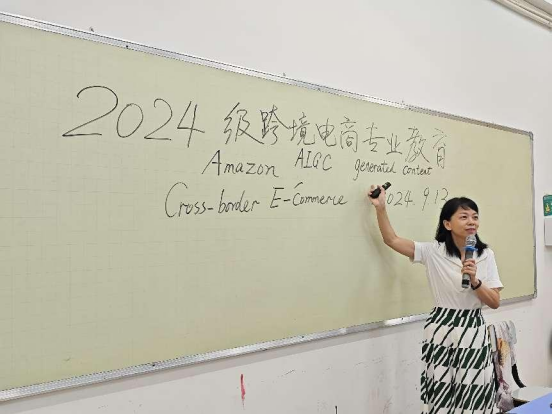 2024级跨境电商专业教育
Amazon AIGC generated content
Cross-border E-Commerce 2024 9 12